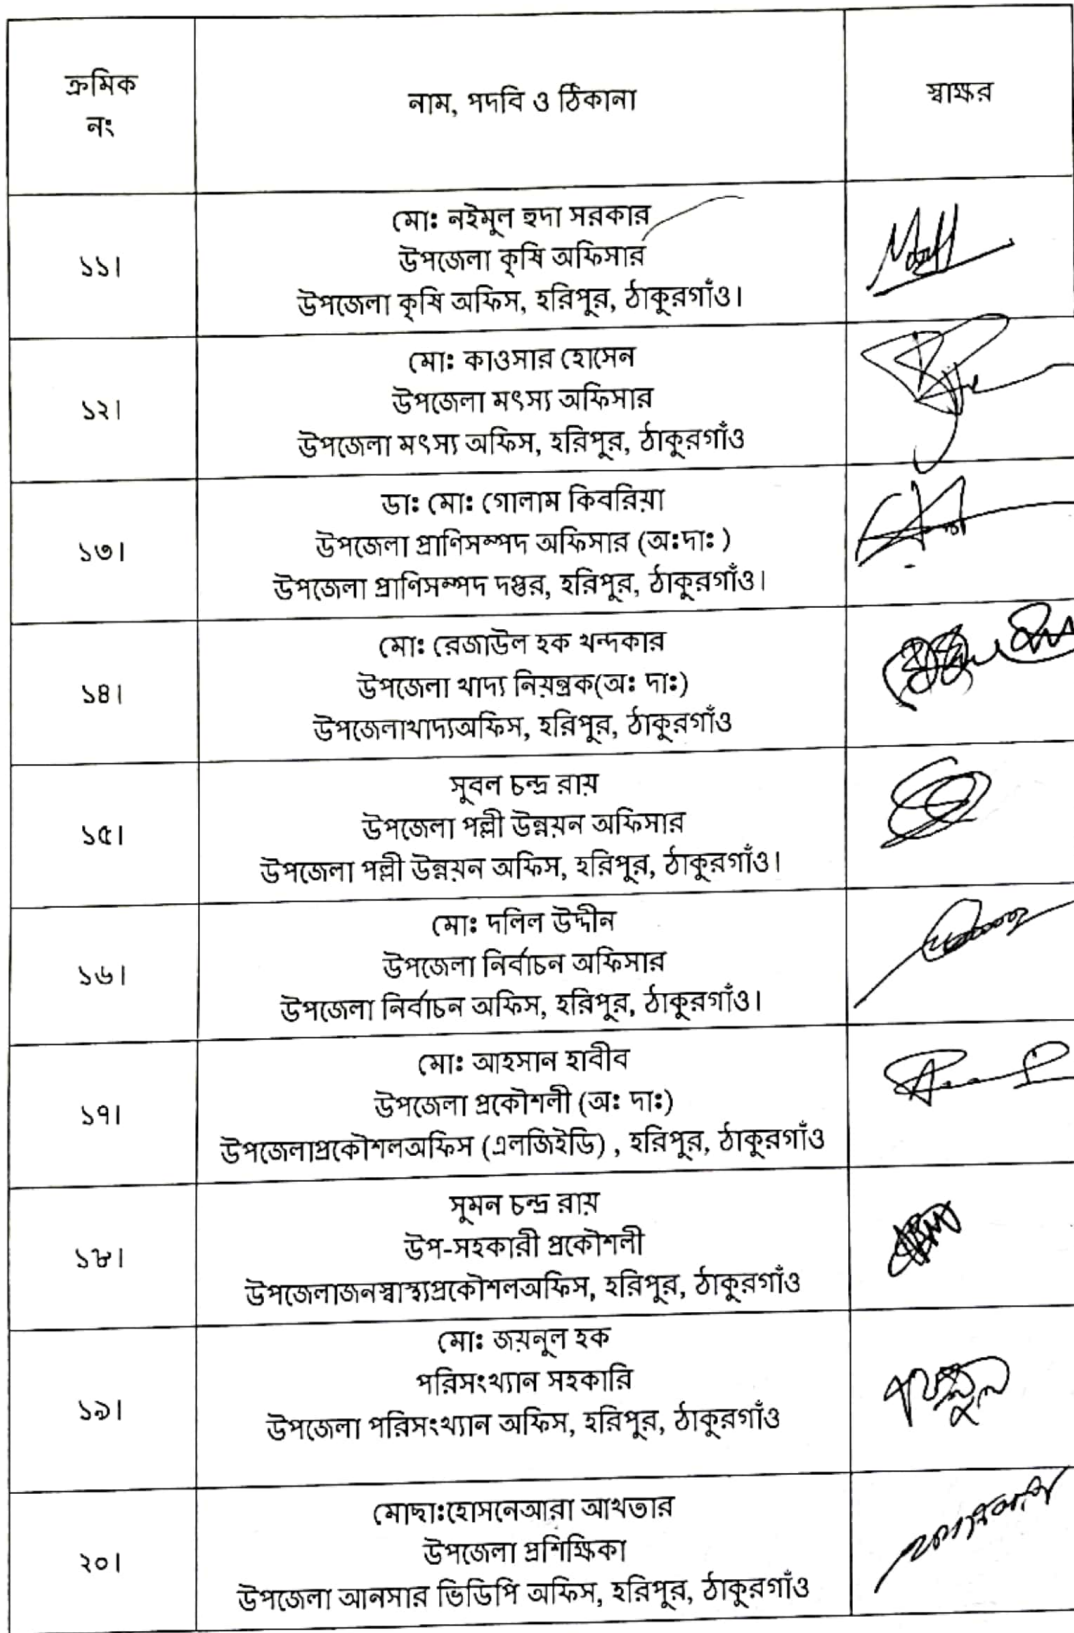 ক্রমিক
নং
নাম, পদবি ও ঠিকানা
স্বাক্ষর
১১।
মো: নইমুল হুদা সরকার
উপজেলা কৃষি অফিসার
উপজেলা কৃষি অফিস, হরিপুর, ঠাকুরগাঁও।
১২।
মো: কাওসার হোসেন
উপজেলা মৎস্য অফিসার
উপজেলা মৎস্য অফিস, হরিপুর, ঠাকুরগাঁও
১৩।
ডা: মো: গোলাম কিবরিয়া
উপজেলা প্রাণিসম্পদ অফিসার (অ:দা: )
উপজেলা প্রাণিসম্পদ দপ্তর, হরিপুর, ঠাকুরগাঁও।
১৪।
মো: রেজাউল হক খন্দকার
উপজেলা খাদ্য নিয়ন্ত্রক(অ: দা:)
উপজেলাখাদ্যঅফিস, হরিপুর, ঠাকুরগাঁও
১৫।
সুবল চন্দ্র রায়
উপজেলা পল্লী উন্নয়ন অফিসার
উপজেলা পল্লী উন্নয়ন অফিস, হরিপুর, ঠাকুরগাঁও।
১৬।
মো: দলিল উদ্দীন
উপজেলা নির্বাচন অফিসার
উপজেলা নির্বাচন অফিস, হরিপুর, ঠাকুরগাঁও।
১৭।
মো: আহসান হাবীব
উপজেলা প্রকৌশলী (অ: দা:)
উপজেলাপ্রকৌশলঅফিস (এলজিইডি) , হরিপুর, ঠাকুরগাঁও
১৮।
সুমন চন্দ্র রায়
উপ-সহকারী প্রকৌশলী
উপজেলাজনস্বাস্থ্যপ্রকৌশলঅফিস, হরিপুর, ঠাকুরগাঁও
১৯।
মো: জয়নুল হক
পরিসংখ্যান সহকারি
উপজেলা পরিসংখ্যান অফিস, হরিপুর, ঠাকুরগাঁও
২০।
মোছা:হোসনেআরা আখতার
উপজেলা প্রশিক্ষিকা
উপজেলা আনসার ভিডিপি অফিস, হরিপুর, ঠাকুরগাঁও